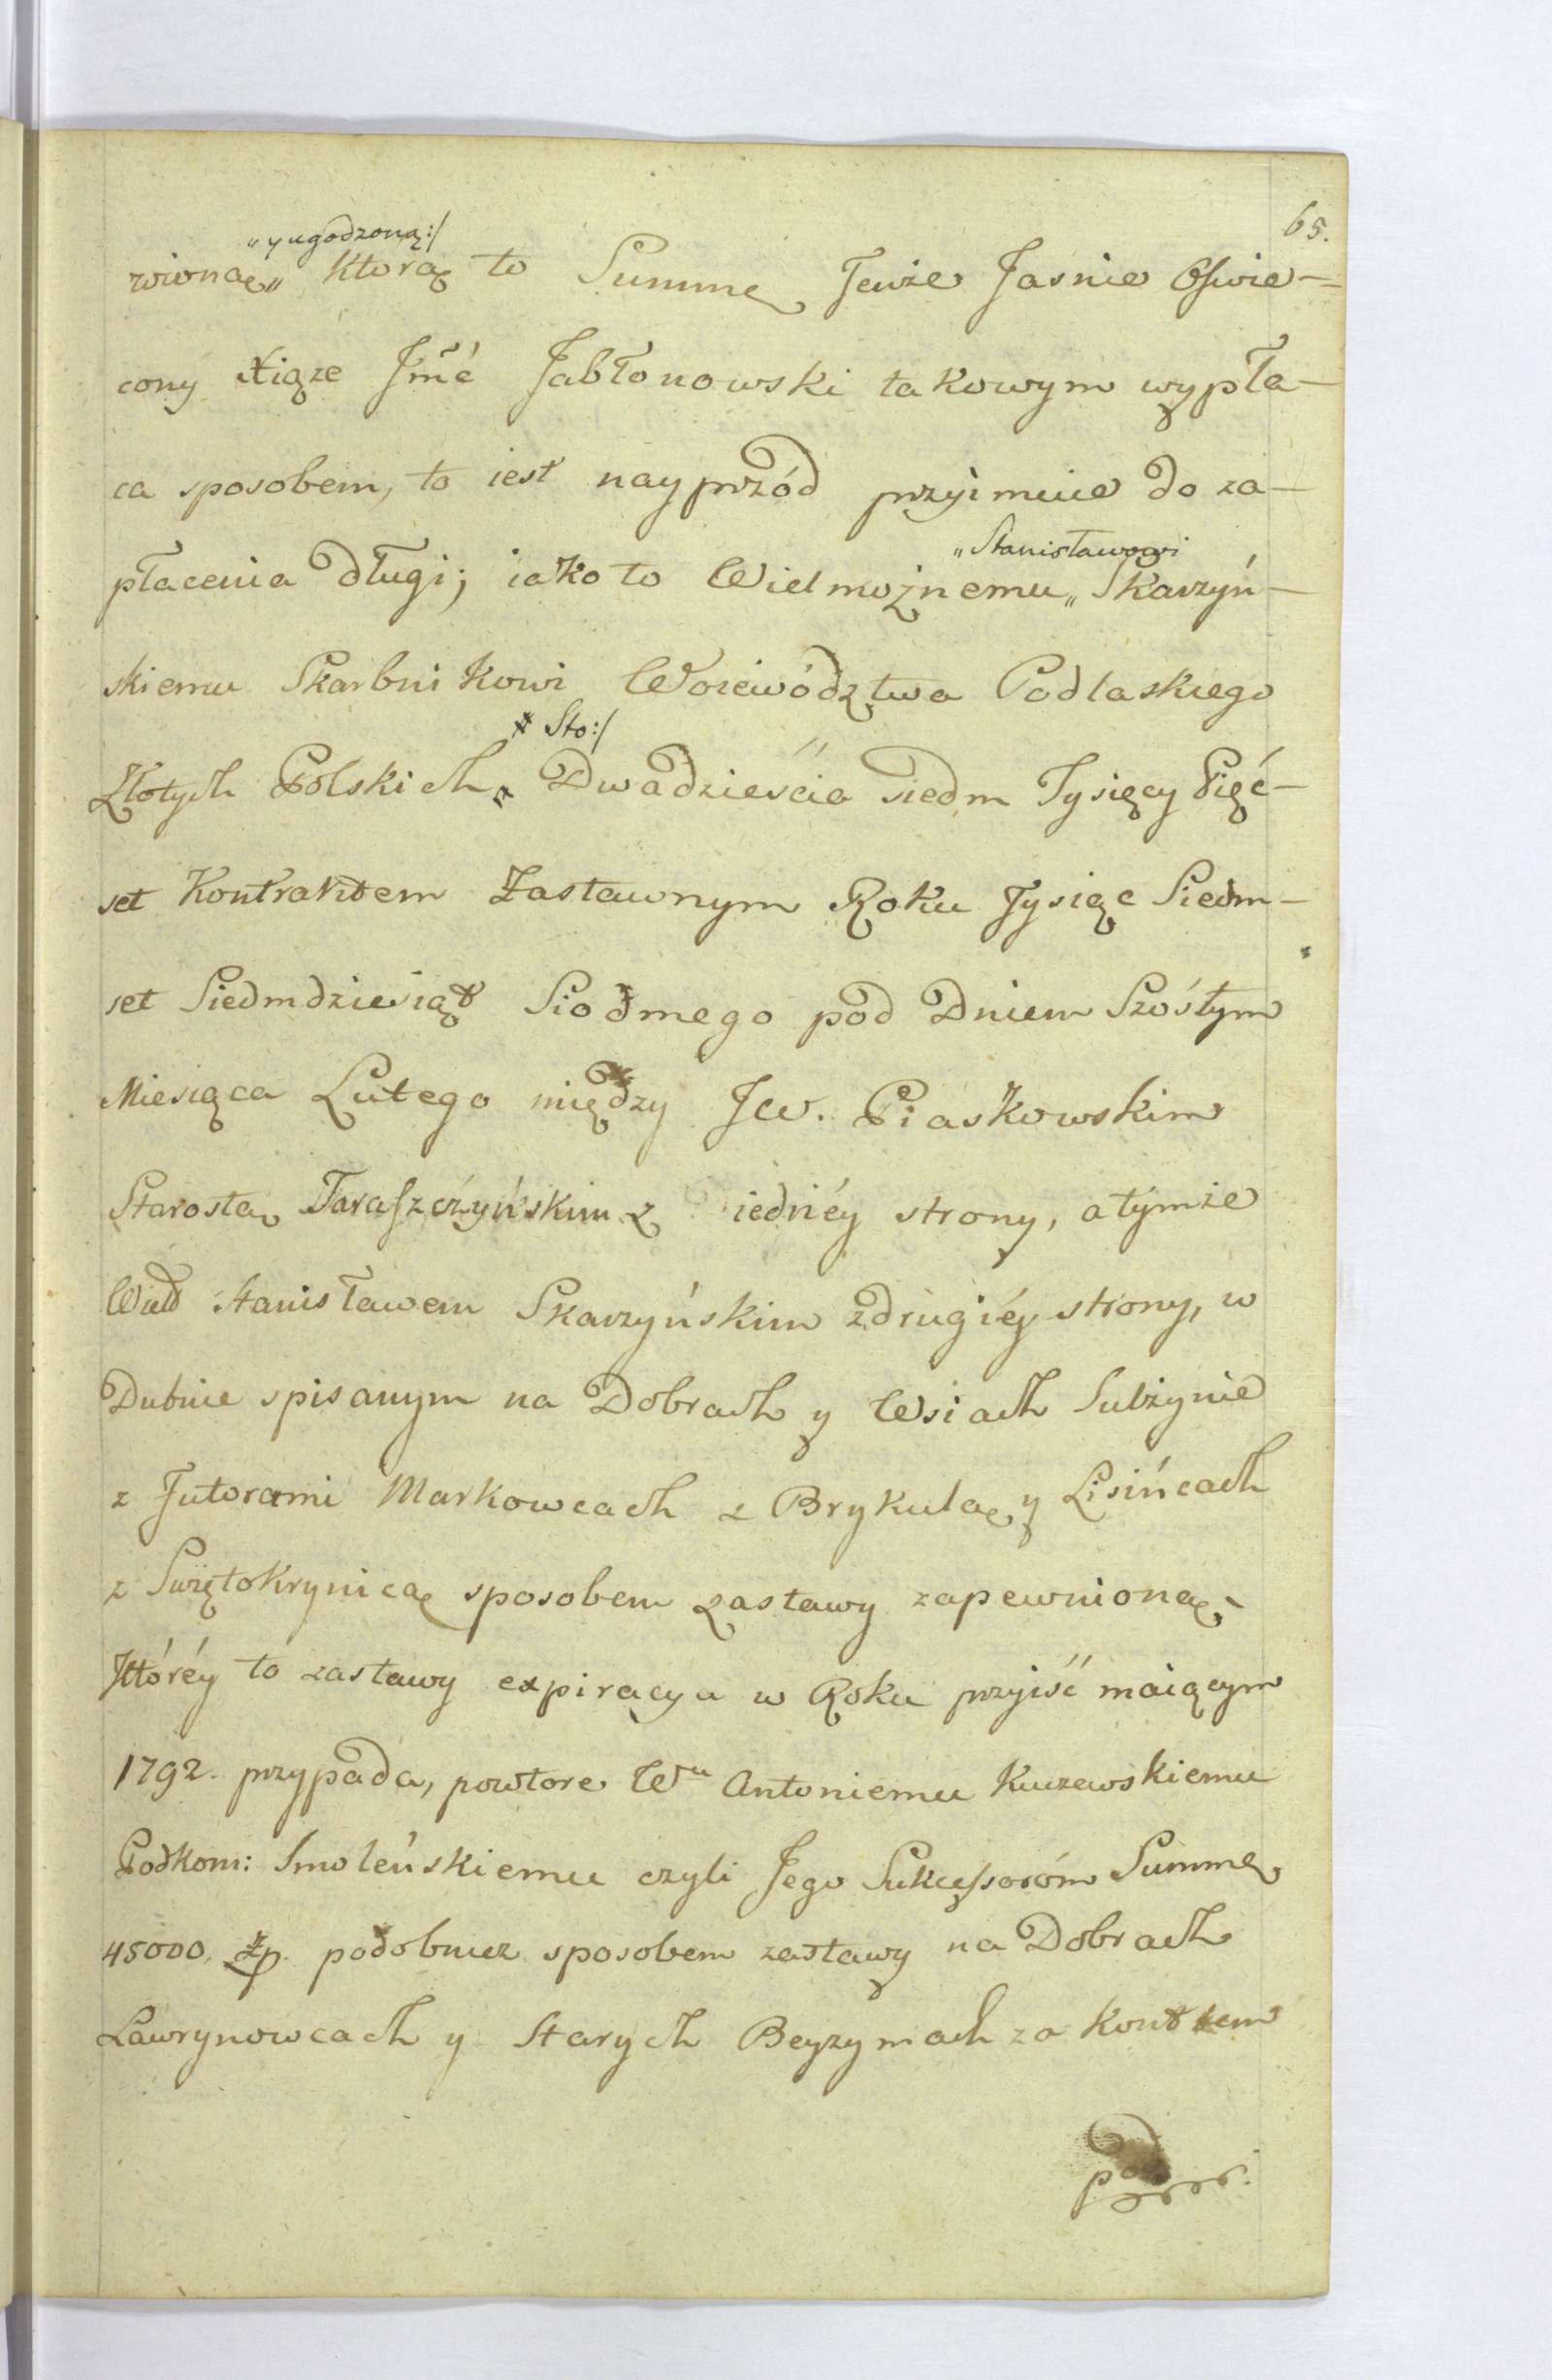 65.
„y ugodzoną:/
wioną„ ktorą to Summę Tenże Jasnie Oświe-
cony Xiąze Jm̃ć Jabłonowski takowym wypła-
ca sposobem, to iest nayprzód przyimuie do za-
„Stanisławowi
płacenia długi; iako to Wielmożnemu„ Skarzyń-
skiemu Skarbnikowi Woiewództwa Podlaskiego
# Sto:/
Złotych Polskich # Dwadzieścia siedm Tysięcy Pięć-
set Kontraktem Zastawnym Roku Tysiąc Siedm-
set Siedmdziesiąt Siodmego pod Dniem Szóstym
Miesiąca Lutego między JW. Piaskowskim
Starostą Taraszczyńskim z iednéy strony, a tymże
Wm Stanisławem Skarzyńskim z drugiéy strony, w
Dubnie spisanym na Dobrach y Wsiach Sulżynie
z Futorami Markowcach z Brykulą y Lisińcach
z Swiętokrynicą sposobem zastawy zapewnioną,-
Któréy to zastawy expiracya w Roku przyiść maiącym
1792. przypada, powtore Wu Antoniemu Kurzewskiemu
Podkom: Smoleńskiemu czyli Jego Sukcessoróm Summę
45000. Zp. podobnież sposobem zastawy na Dobrach
Ławrynowcach y Starych Beyzymach za Konttem
pod